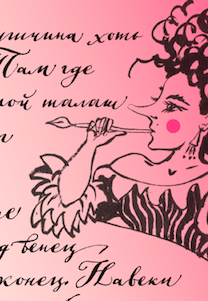 ушчина хоть
Там где
ой шалаш
д венец
конец. Навеки